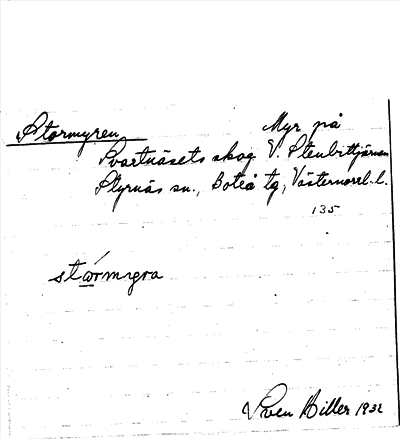 Stormyren Myr på
Svartnäsets skog V. Stenbittjärnen
Styrnäs sn., Boteå tg, Västernorrl. l.
135
stårmyra
Sven Hiller 1932